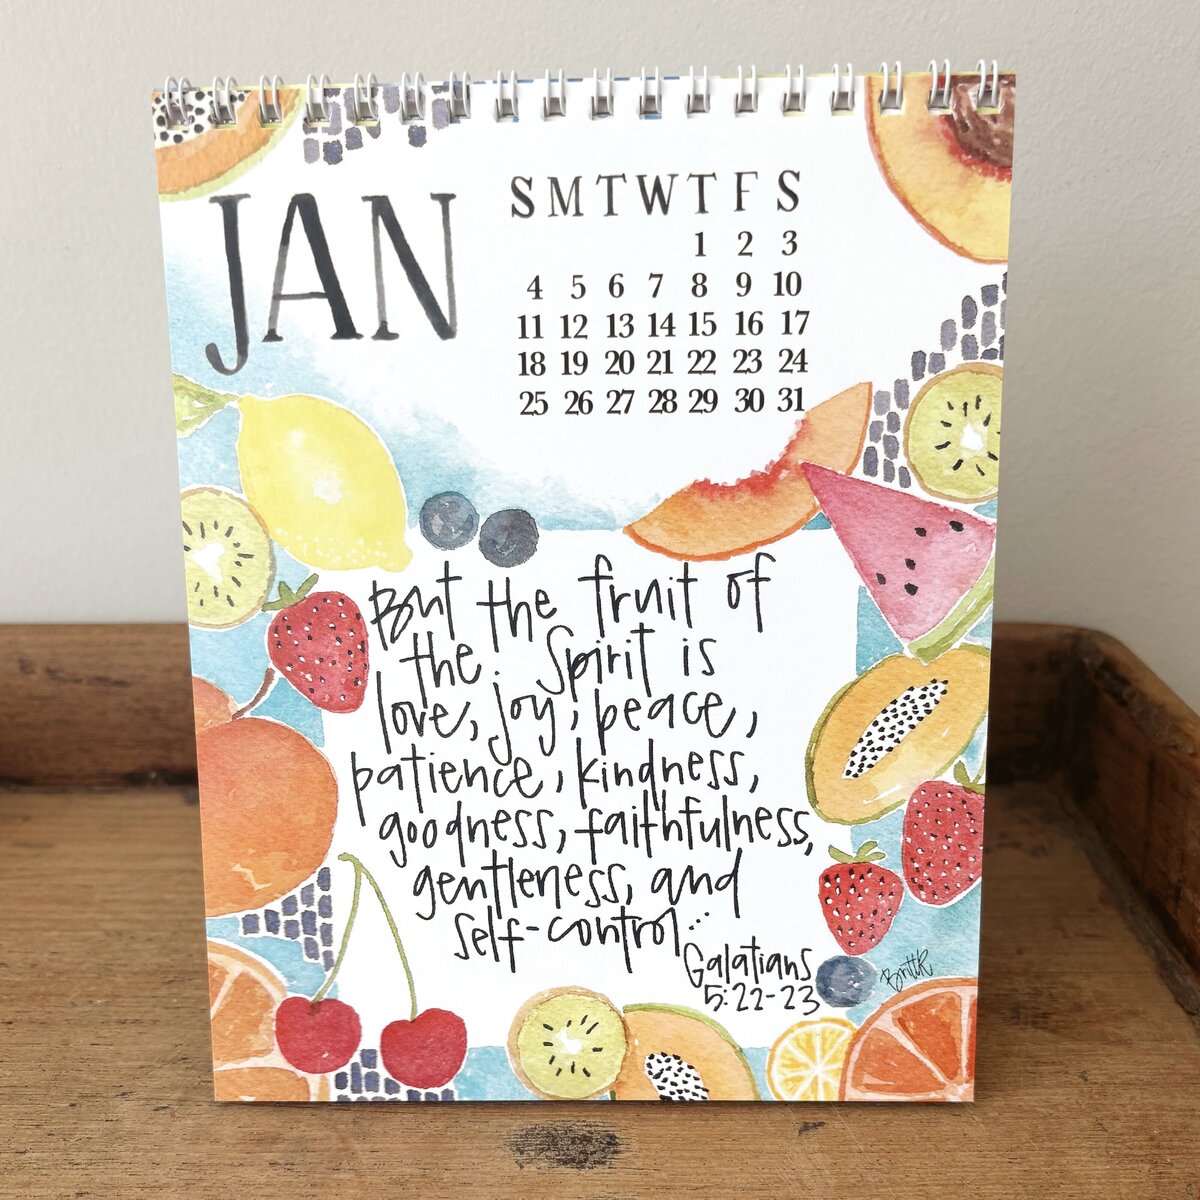 JAN
S M T W T F S
1 2 3
4 5 6 7 8 9 10
11 12 13 14 15 16 17
18 19 20 21 22 23 24
25 26 27 28 29 30 31
But the fruit of
the Spirit is
love, joy, peace,
patience, kindness,
goodness, faithfulness,
gentleness, and
self-control...
Galatians
5:22-23
BrittR